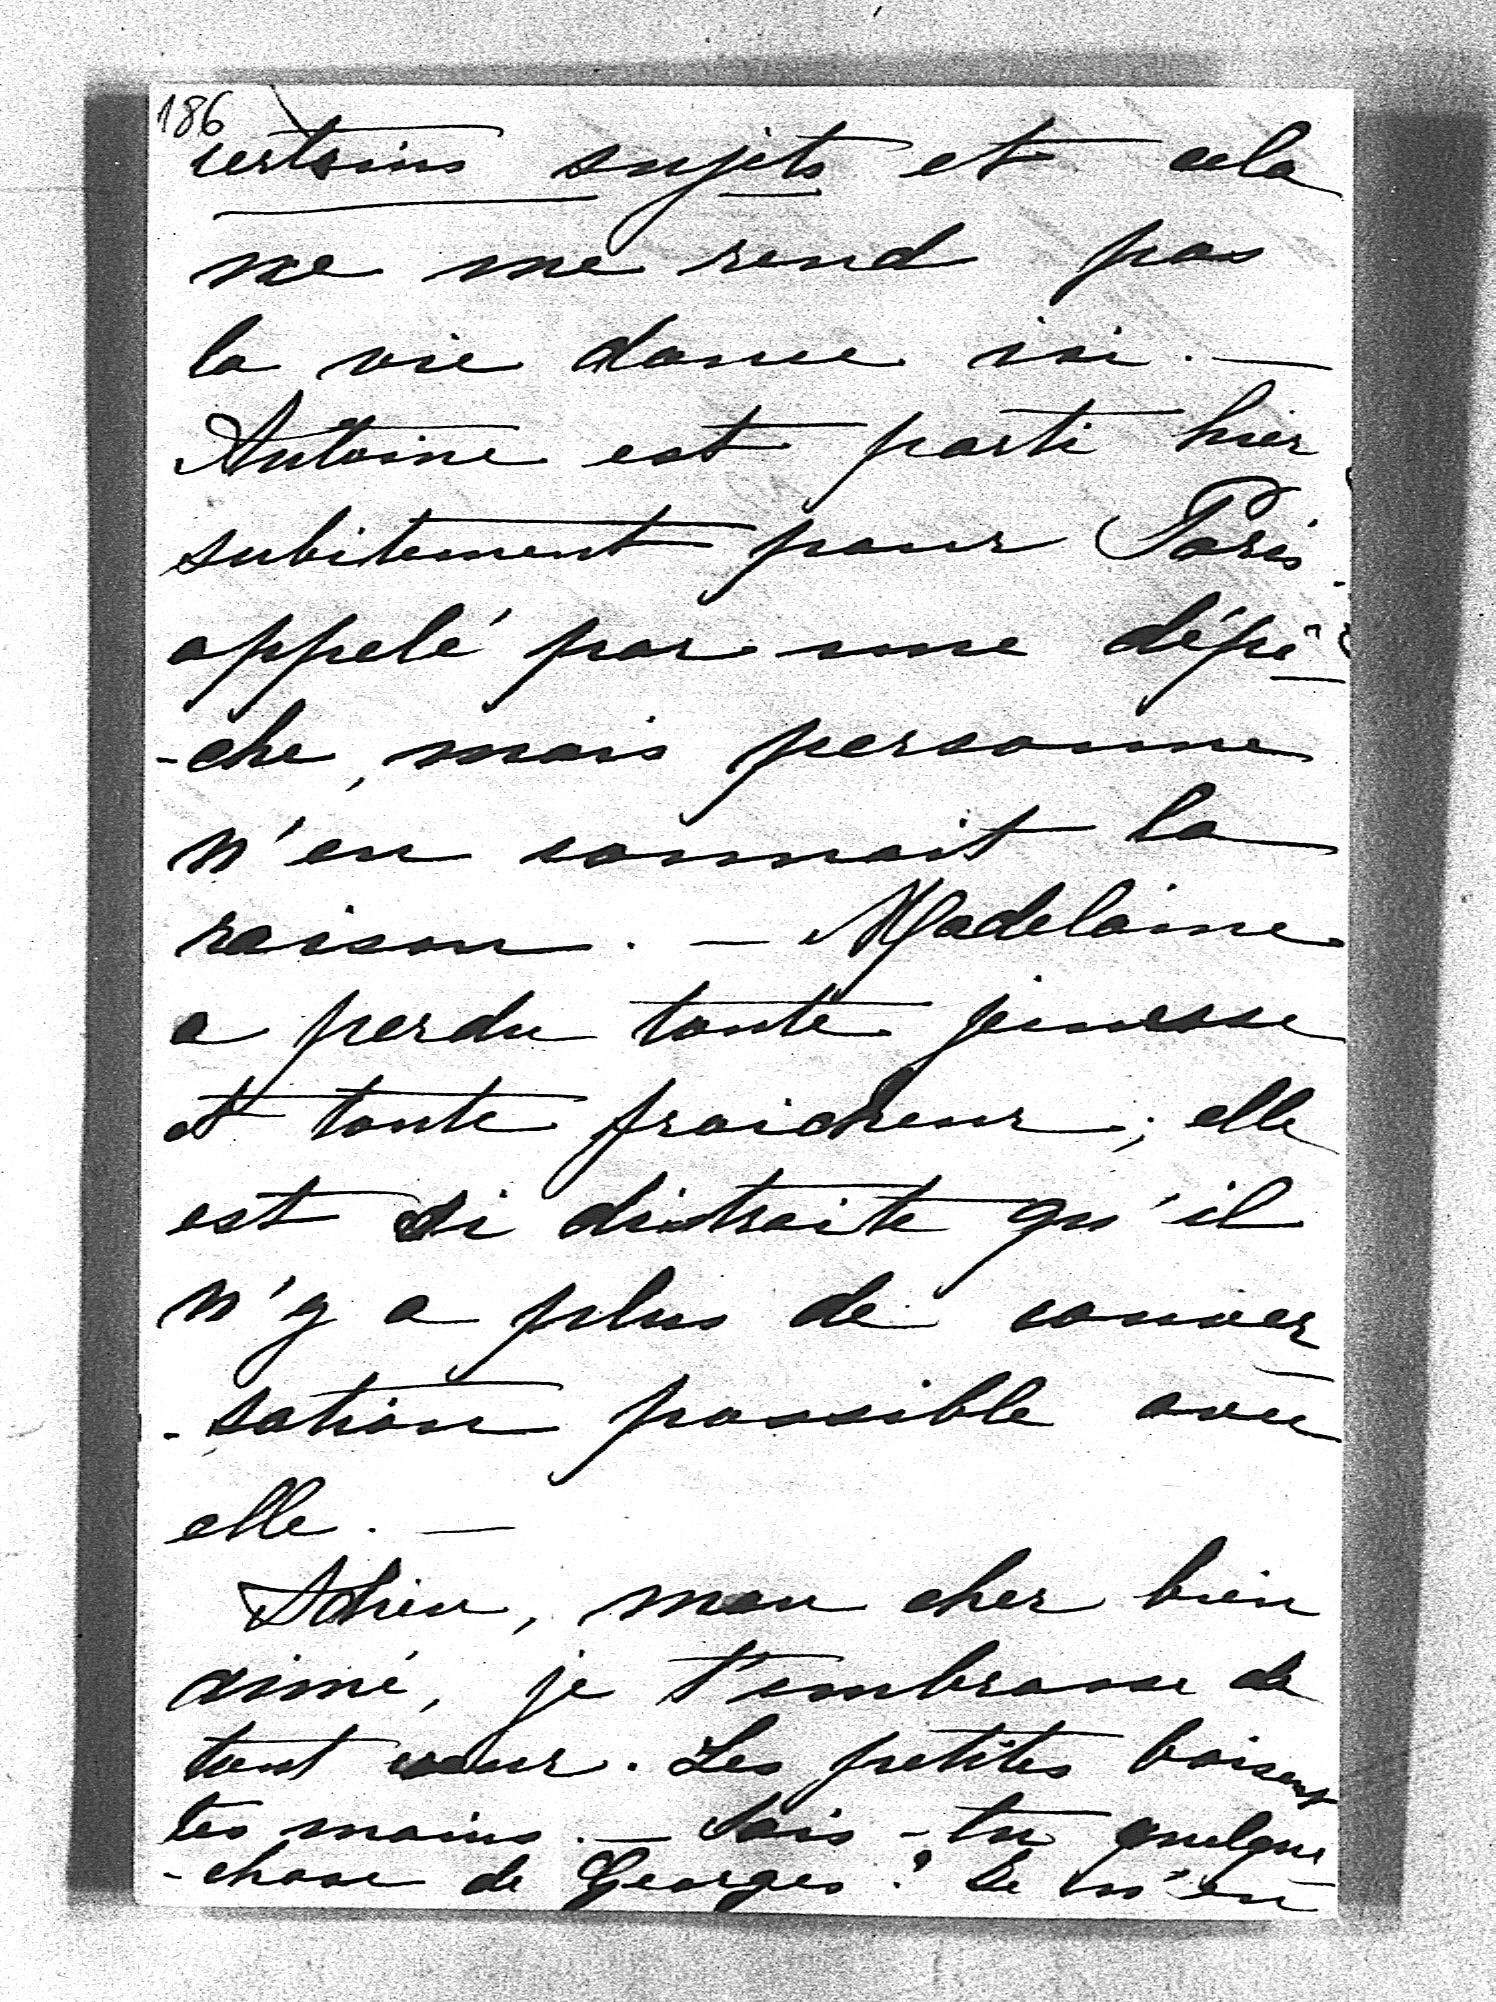 186
certains sujets et cela
ne me rend pas
la vie douce ici. —
Antoine est parti hier
subitement pour Paris
appelé par une dépê-
-che, mais personne
n'en connait la
raison. — Madelaine
a perdu toute jeunesse
et toute fraicheur; elle
est si distraite qu'il
n'y a plus de conver
-sation possible avec
elle. —
Adieu, mon cher bien
aimé, je t'embrasse de
tout cœur. Les petites baisent
tes mains. — Sais-tu quelque
-chose de Georges? Je n'en